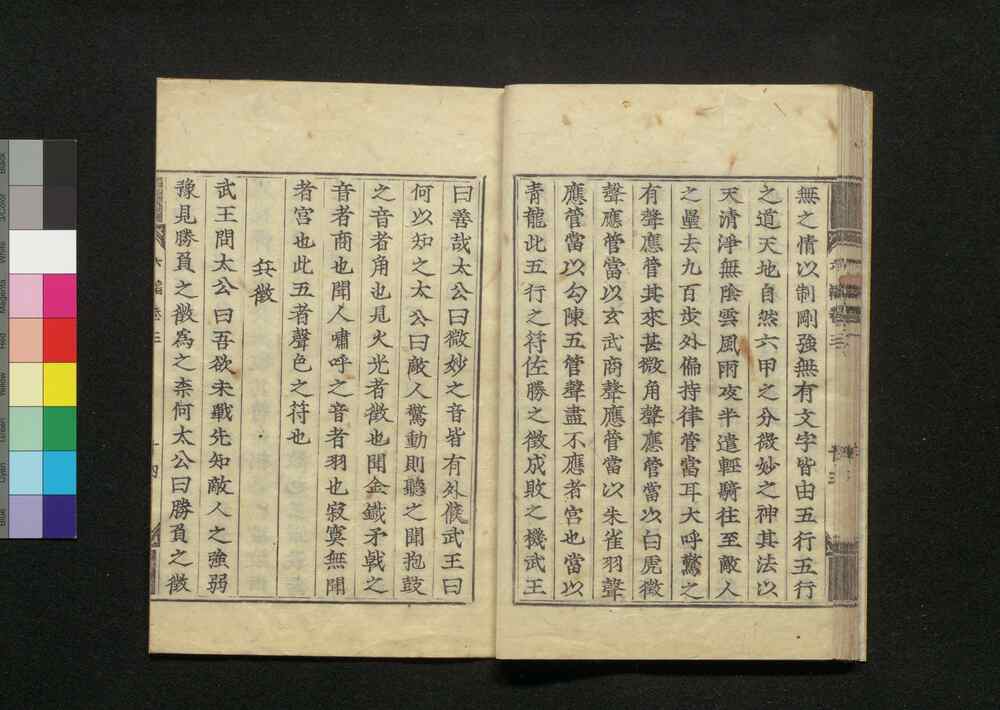 無之情以制剛強無有文字皆由五行五行
之道天地自然六甲之分微妙之神其法以
天清淨無陰雲風雨夜半遣輕騎往至敵人
之壘去九百步外偏持律管當耳大呼驚之
有聲應管其來甚微角聲應管當以白虎徵
聲應管當以玄武商聲應管當以朱雀羽聲
應管當以勾陳五管聲盡不應者宮也當以
青龍此五行之符佐勝之徵成敗之機武王
曰善哉太公曰微妙之音皆有外候武王曰
何以知之太公曰敵人驚動則聽之聞枹鼓
之音者角也見火光者徵也聞金鐵矛戟之
音者商也聞人嘯呼之音者羽也寂寞無聞
者宮也此五者聲色之符也
兵徵
武王問太公曰吾欲未戰先知敵人之強弱
豫見勝負之徵為之柰何太公曰勝負之徵
六韜卷三
十四